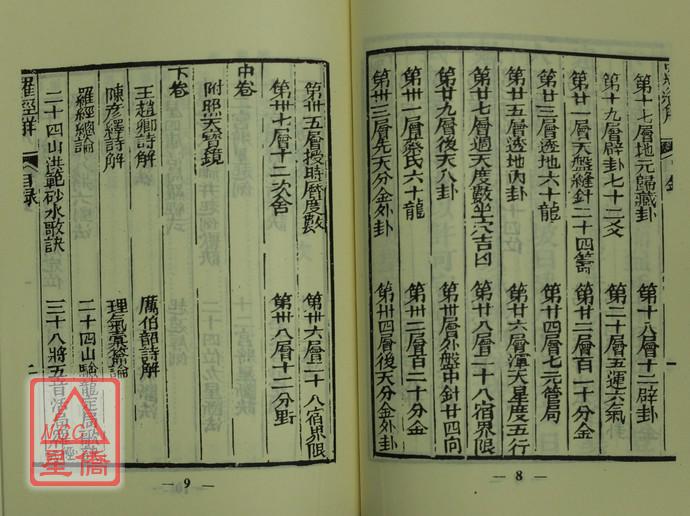 第十七層地元歸藏卦
第十八層十二辟卦
第十九層辟卦七十二爻
第二十層五運六氣
第廿一層天盤縫針二十四籌
第廿二層百一十分金
第廿三層透地六十龍
第廿四層七元管局
第廿五層透地內卦
第廿六層渾天星度五行
第廿七層週天度數坐穴吉凶
第廿八層二十八宿界限
第廿九層後天八卦
第卅層外盤中針廿四向
第卅一層蔡氏六十龍
第卅二層百二十分金
第卅三層先天分金外卦
第卅四層後天分金外卦
— 8 —
第卅五層授時曆度數
第卅六層二十八宿界限
第卅七層十二次舍
第卅八層十二分野
中卷
附照天寶鏡
下卷
王趙卿詩解
厲伯韶詩解
陳彥繹詩解
理氣槖籥論
羅經總論
二十四山
二十四山洪範砂水歌訣
三十八將五音
羅經解
目録
— 9 —
NCC
星僑